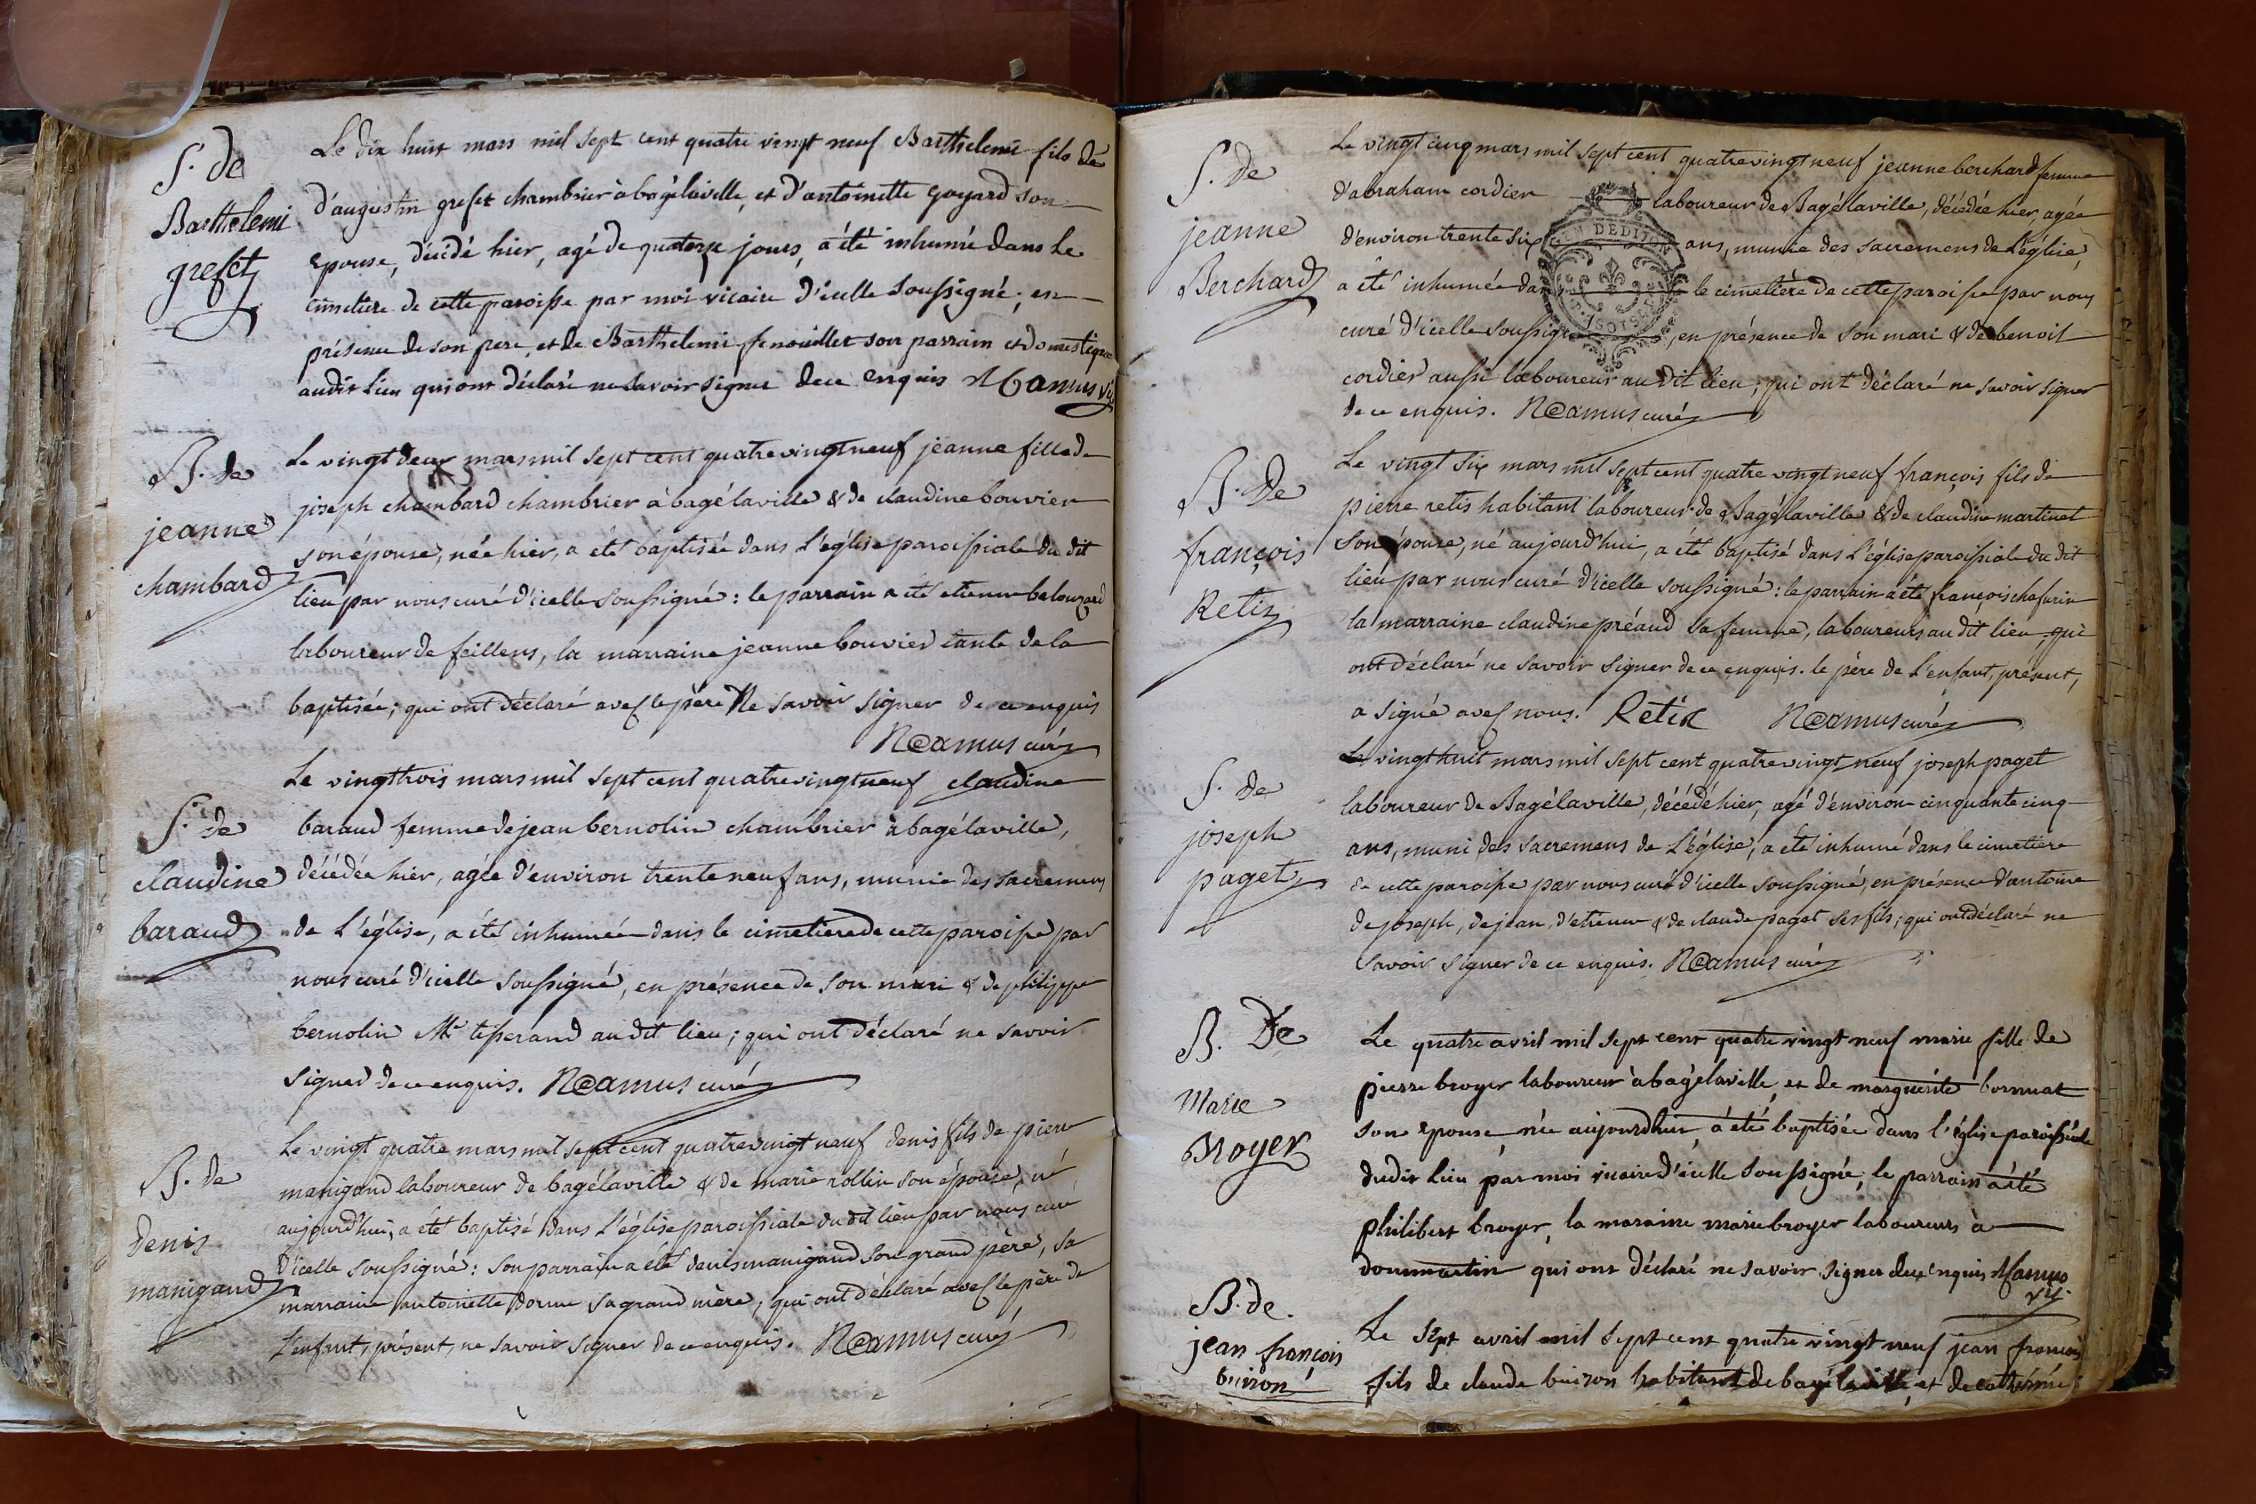 S. de
Barthelemi
grefet
Le dix huit mars mil sept cent quatre vingt neuf Barthelemi fils de
d'augustin grefet chambrier à bagélaville, et d'antoinette goyard son
epouse, décédé hier, agé de quatorze jours, a été inhumé dans le
cimetière de cette paroisse par moi vicaire d'icelle soussigné, en
présence de son pere, et de Barthelemi fenouillet son parrain et domestique
audit lieu qui ont déclaré ne savoir signer de ce enquis Mamus vic
B. de
jeanne
chambard
Le vingt deux mars mil sept cent quatre vingt neuf jeanne fille de
joseph chambard chambrier à bagélaville & de claudine bouvier
son épouse, née hier, a été baptisée dans l'église paroissiale du dit
lieu par nous curé d'icelle soussigné : le parrain a été etienne balouzard
laboureur de feillens, la marraine jeanne bouvier tante de la
baptisée; qui ont déclaré avec le père Ne savoir signer de ce enquis
Camus curé
S. de
claudine
baraud
Le vingt trois mars mil sept cent quatre vingt neuf claudine
baraud femme de jean bernolin chambrier à bagélaville,
décédée hier, agée d'environ trente neuf ans, munie des sacremens
de l'église, a été inhumée dans le cimetière de cette paroisse par
nous curé d'icelle soussigné, en présence de son mari & de philippe
bernolin Me tisserand au dit lieu; qui ont déclaré ne savoir
signer de ce enquis. Camus curé
B. de
denis
manigand
Le vingt quatre mars mil sept cent quatre vingt neuf denis fils de pierre
manigand laboureur de bagélaville & de marie rollin son épouse, né
aujourd'hui, a été baptisé dans l'église paroissiale du dit lieu par nous curé
d'icelle soussigné : son parrain a été denis manigand son grand père, sa
marraine antoinette dorme sa grand mère, qui ont déclaré avec le père de
l'enfant, présent, ne savoir signer de ce enquis. Camus curé
S. de
jeanne
Berchard
Le vingt cinq mars mil sept cent quatre vingt neuf jeanne berchard femme
d'abraham cordier laboureur de Bagélaville, décédée hier, agée
d'environ trente six ans, munie des sacremens de l'église,
a été inhumée dans le cimetière de cette paroisse par nous
curé d'icelle soussigné, en présence de son mari & de benoit
cordier aussi laboureur au dit lieu; qui ont déclaré ne savoir signer
de ce enquis. Camus curé
GEN DE DIJON
B. De
françois
Retis
Le vingt six mars mil sept cent quatre vingt neuf françois fils de
pierre retis habitant laboureur de Bagélaville & de claudine martinet
son épouse, né aujourd'hui, a été baptisé dans l'église paroissiale du dit
lieu par nous curé d'icelle soussigné : le parrain a été françois chafurin
la marraine claudine préaud sa femme, laboureurs au dit lieu, qui
ont déclaré ne savoir signer de ce enquis. le père de l'enfant, présent,
a signé avec nous. Retis Camus curé
S. de
joseph
paget
Le vingt huit mars mil sept cent quatre vingt neuf joseph paget
laboureur de Bagélaville, décédé hier, agé d'environ cinquante cinq
ans, muni des sacremens de l'église, a été inhumé dans le cimetière
de cette paroisse par nous curé d'icelle soussigné, en présence d'antoine
de joseph, de jean, d'etienne & de claude paget ses fils; qui ont déclaré ne
savoir signer de ce enquis. Camus curé
B. De
Marie
Broyer
Le quatre avril mil sept cent quatre vingt neuf marie fille de
pierre broyer laboureur à bagélaville, et de marguerite bornuat
son epouse, née aujourdhui, a été baptisée dans l'église paroissiale
dudit lieu par moi vicaire d'icelle soussigné, le parrain a été
philibert broyer, la maraine marie broyer laboureurs à
dommartin qui ont déclaré ne savoir signer de ce enquis Mamus
vic.
B. de.
jean françois
buiron
Le sept avril mil sept cent quatre vingt neuf jean françois
fils de claude buiron habitant de bagélaville, et de catherine